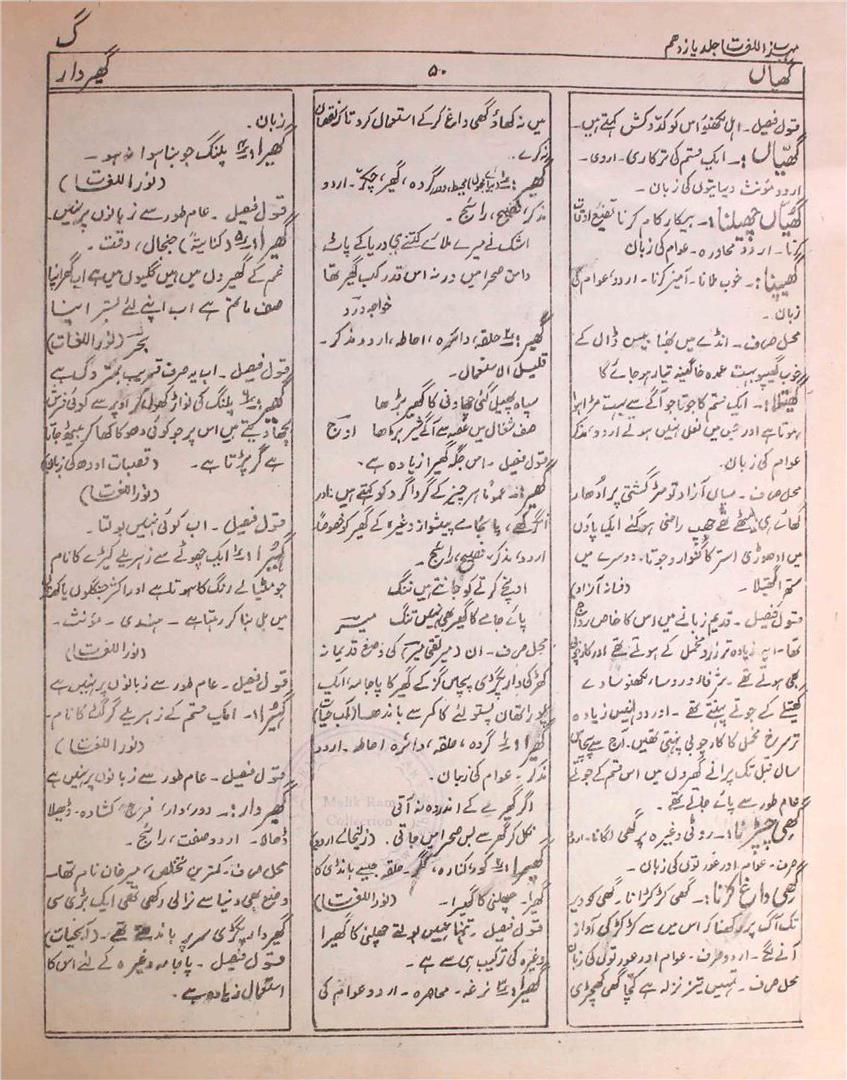 مہذب اللغت جلد یازدہم
گ
گھیاں
۵۰
گھیر دار
قول فیصل۔ اہل لکھنؤ اس کو کدّوکش کہتے ہیں۔
گھیّاں :۔ ایک قسم کی ترکاری۔ اروی۔
اردو مؤنث دیہاتیوں کی زبان۔
گھیّاں چھیلنا :۔ بیکار کام کرنا تضیع اوقات
کرنا۔ اردو محاورہ۔ عوام کی زبان
گھیپنا :۔ خوب ملانا۔ آمیز کرنا۔ اردو عوام کی
زبان۔
محل صرف۔ انڈے میں بھنا بیسن ڈال کے
خوب گھیپو بہت عمدہ خاگینہ تیار ہو جائے گا
گھیتلا :۔ ایک قسم کا جوتا جو آگے سے بہت مڑا ہوا
ہوتا ہے اور جس میں نعل نہیں ہوتے اردو مذکر
عوام کی زبان۔
محل صرف۔ میاں آزاد تو مٹر گشتی پر ادھار
کھائے ہی بیٹھے تھے جھپ راضی ہو گئے ایک پاؤں
میں ادھوڑی استر کا گنوارو جوتا۔ دوسرے میں
ستھرا گھیتلا۔ (فسانہ آزاد)
قول فیصل۔ قدیم زمانے میں اس کا خاص رواج
تھا۔ یہ زیادہ تر زرد مخمل کے ہوتے تھے اور کارچوبی
بھی ہوتے تھے۔ شرفا و رؤسا، لکھنؤ سادے
گھیتلے کے جوتے پہنتے تھے۔ اور دولہنیں زیادہ
تر سرخ مخمل کا کارچوبی پہنتی تھیں۔ آج سے پچاس
سال قبل تک پرانے گھروں میں اس قسم کے جوتے
عام طور سے پائے جاتے تھے۔
گھی چپڑنا :۔ روٹی وغیرہ پر گھی لگانا۔ اردو
صرف۔ عوام اور عورتوں کی زبان۔
گھی داغ کرنا :۔ گھی کڑکڑانا۔ گھی کو دیر
تک آگ پر رکھنا کہ اس میں سے کڑکڑ کی آواز
آنے لگے۔ اردو صرف۔ عوام اور عورتوں کی زبان
محل صرف۔ تمہیں تیز نزلہ ہے کچا گھی کھچڑی
میں نہ کھاؤ گھی داغ کر کے استعمال کرو تاکہ نقصان
نہ کرے۔
گھیر محیط، دور گردہ، گھیر، چکّر۔ اردو
مذکر، فصیح، رائج۔
اشک نے میرے ملائے کتنے ہی دریا کے پاٹ
دامن صحرا میں ورنہ اس قدر کب گھیر تھا
خواجہ درد
گھیر ۲؎ حلقہ، دائرہ، احاطہ، اردو مذکر۔
قلیل الاستعمال۔
سپاہ پھیل گئی چھاؤنی کا گھیر بڑھا
صف شغال میں غصہ سے آگے شیر بڑھا اوج
قول فیصل۔ اس جگہ گھیرا زیادہ ہے۔
گھیر عموماً ہر چیز کے گردا گرد کو کہتے ہیں اور
انگرکھے، پائجامے پیشواز وغیرہ کے گھیر کو خصوصاً
اردو، مذکر، فصیح، رائج۔
اونچے کرتے کو جانتے ہیں ننگ
پائے جامے کا گھیر بھی نہیں تنگ میر
محل صرف۔ ان (میر تقی میر) کی وضع قدیمانہ
کھڑکی دار پگڑی پچاس گز کے گھیر کا پاجامہ ایک
پورا تھان پستولئے کا کمر سے باندھا (آب حیات)
گھیرا ۱؎ گردہ، حلقہ، دائرہ احاطہ۔ اردو
مذکر۔ عوام کی زبان۔
اگر گھیرے کے اندر وہ نہ آتی
نکل کر گھر سے بس صحرا میں جاتی۔ (زلیخائے اردو)
گھیرا ۲؎ گود، کنارہ، گگر۔ حلقہ جیسے ہانڈی کا
گھیرا۔ چھلنی کا گھیرا۔ (نور اللغت)
قول فیصل۔ تنہا نہیں بولتے چھلنی کا گھیرا
وغیرہ کی ترکیب ہی سے ہے۔
گھیرا ۳؎ نرغہ۔ محاصرہ۔ اردو عوام کی
زبان۔
گھیرا ۴؎ پلنگ جو بنا ہوا نہ ہو۔
(نور اللغت)
قول فیصل۔ عام طور سے زبانوں پر نہیں۔
گھیرا ۵؎ (کنایۃً) جنجال، دقت۔
غم کے گھیر دل میں ہیں نکیوں میں ہے اب گھر اپنا
صف ماتم ہے اب اپنے لئے بستر اپنا
بحر (نور اللغات)
قول فیصل۔ اب یہ صرف قریب بمتروک ہے
گھیرا ۶؎ پلنگ کی نواڑ کھول کر اوپر سے کوئی فرش
بچھا دیتے ہیں اس پر جو کوئی دھوکا کھا کر بیٹھ جاتا
ہے گر پڑتا ہے۔ (قصبات اودھ کی زبان)
(نور اللغت)
قول فیصل۔ اب کوئی نہیں بولتا۔
ایک چھوٹے سے زہریلے کیڑے کا نام
جو مٹیالے رنگ کا ہوتا ہے اور اکثر جنگلوں یا کھیتوں
میں بل بنا کر رہتا ہے۔ ہندی۔ مؤنث۔
(نور اللغت)
قول فیصل۔ عام طور سے زبانوں پر نہیں ہے
ایک قسم کے زہریلے گرگٹ کا نام۔
(نور اللغت)
قول فیصل۔ عام طور سے زبانوں پر نہیں ہے
گھیر دار :۔ دور دار، فرخ، کشادہ۔ ڈھیلا
ڈھالا۔ اردو صفت، رائج۔
محل صرف۔ کمترین تخلص، میر خان نام تھا۔
وضع بھی دنیا سے نرالی رکھی تھی ایک بڑی سی
گھیر دار پگڑی سر پر باندھتے تھے۔ (آب حیات)
قول فیصل۔ پاجامہ وغیرہ کے لئے اس کا
استعمال زیادہ ہے۔
Malik Ram
Collection